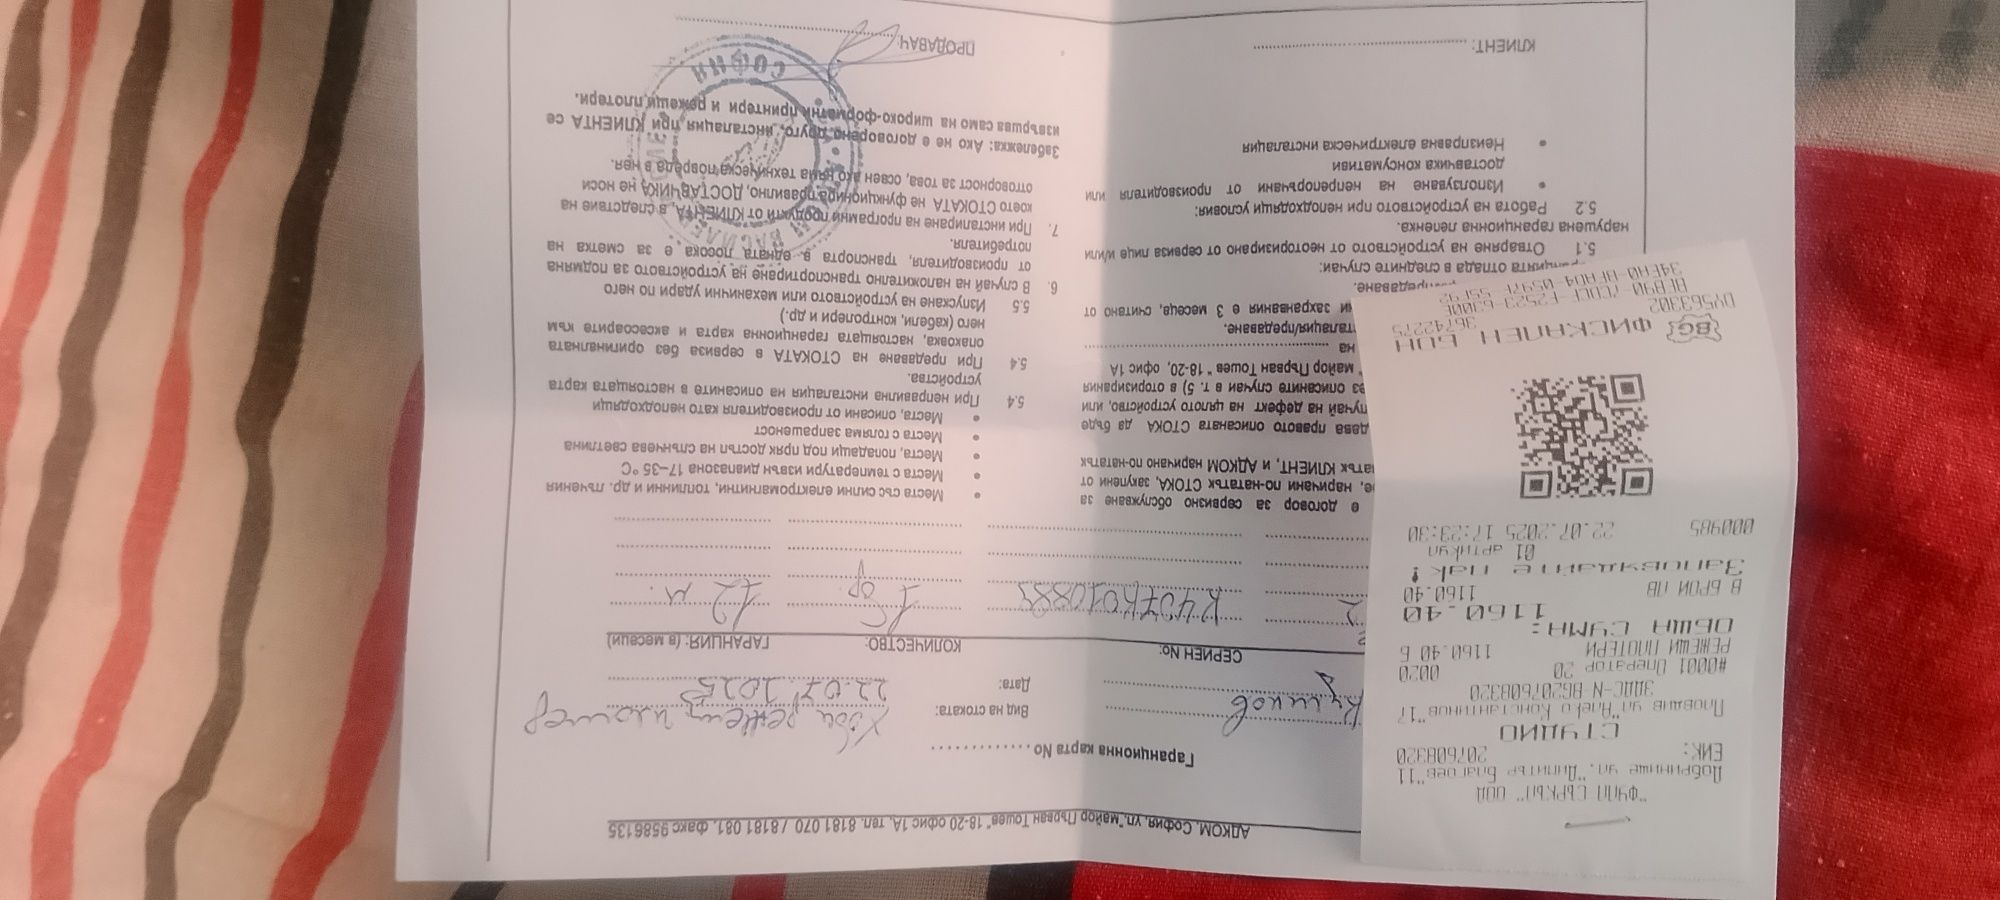 АДКОМ, София, ул."майор Първан Тошев" 18-20 офис 1А, тел. 8181 070 / 8181 081, факс 9586135
Гаранционна карта No
Вид на стоката: Хоби режещ плотер
Дата: 22.07.2025
Куликов
СЕРИЕН No:
КОЛИЧЕСТВО:
ГАРАНЦИЯ: (в месеци)
1 бр.
12 м.
е договор за сервизно обслужване за
наричани по-нататък СТОКА, закупени от
КЛИЕНТ, и АДКОМ наричано по-нататък
правото описаната СТОКА да бъде
на дефект на цялото устройство, или
описаните случаи в т. 5) в оторизирания
" майор Първан Тошев " 18-20, офис 1А
на
захранвания е 3 месеца, считано от
отпада в следните случаи:
5.1 Отваряне на устройството от неоторизирано от сервиза лице и/или
нарушена гаранционна лепенка.
5.2 Работа на устройството при неподходящи условия:
• Използване на непрепоръчани от производителя или
доставчика консумативи
• Неизправна електрическа инсталация
КЛИЕНТ:
• Места със силни електромагнитни, топлинни и др. лъчения
• Места с температури извън диапазона 17–35 °C
• Места, попадащи под пряк достъп на слънчева светлина
• Места с голяма запрашеност
• Места, описани от производителя като неподходящи
5.4 При неправилна инсталация на описаните в настоящата карта
устройства.
5.4 При предаване на СТОКАТА в сервиза без оригиналната
опаковка, настоящата гаранционна карта и аксесоарите към
него (кабели, контролери и др.)
5.5 Изпускане на устройството или механични удари по него
6. В случай на наложително транспортиране на устройството за подмяна
от производителя, транспорта в едната посока е за сметка на
потребителя.
7. При инсталиране на програмни продукти от КЛИЕНТА, в следствие на
което СТОКАТА не функционира правилно, ДОСТАВЧИКА не носи
отговорност за това, освен ако няма техническа повреда в нея.
Забележка: Ако не е договорено друго, инсталация при КЛИЕНТА се
извършва само на широко-форматни принтери и режещи плотери.
ПРОДАВАЧ:
СОФИЯ
"ФУЛЛ СЪРКЪЛ" ООД
Добринище ул. "Димитър Благоев"11
ЕИК: 207608320
СТУДИО
Пловдив ул "Алеко Константинов" 17
ЗДДС-N-BG207608320
#0001 Оператор 20 0020
РЕЖЕЩИ ПЛОТЕРИ 1160.40 Б
ОБЩА СУМА: 1160.40
В БРОЙ ЛВ 1160.40
Заповядайте пак!
01 артикул
000985 22.07.2025 17:23:30
BG ФИСКАЛЕН БОН
DY563302 36742275